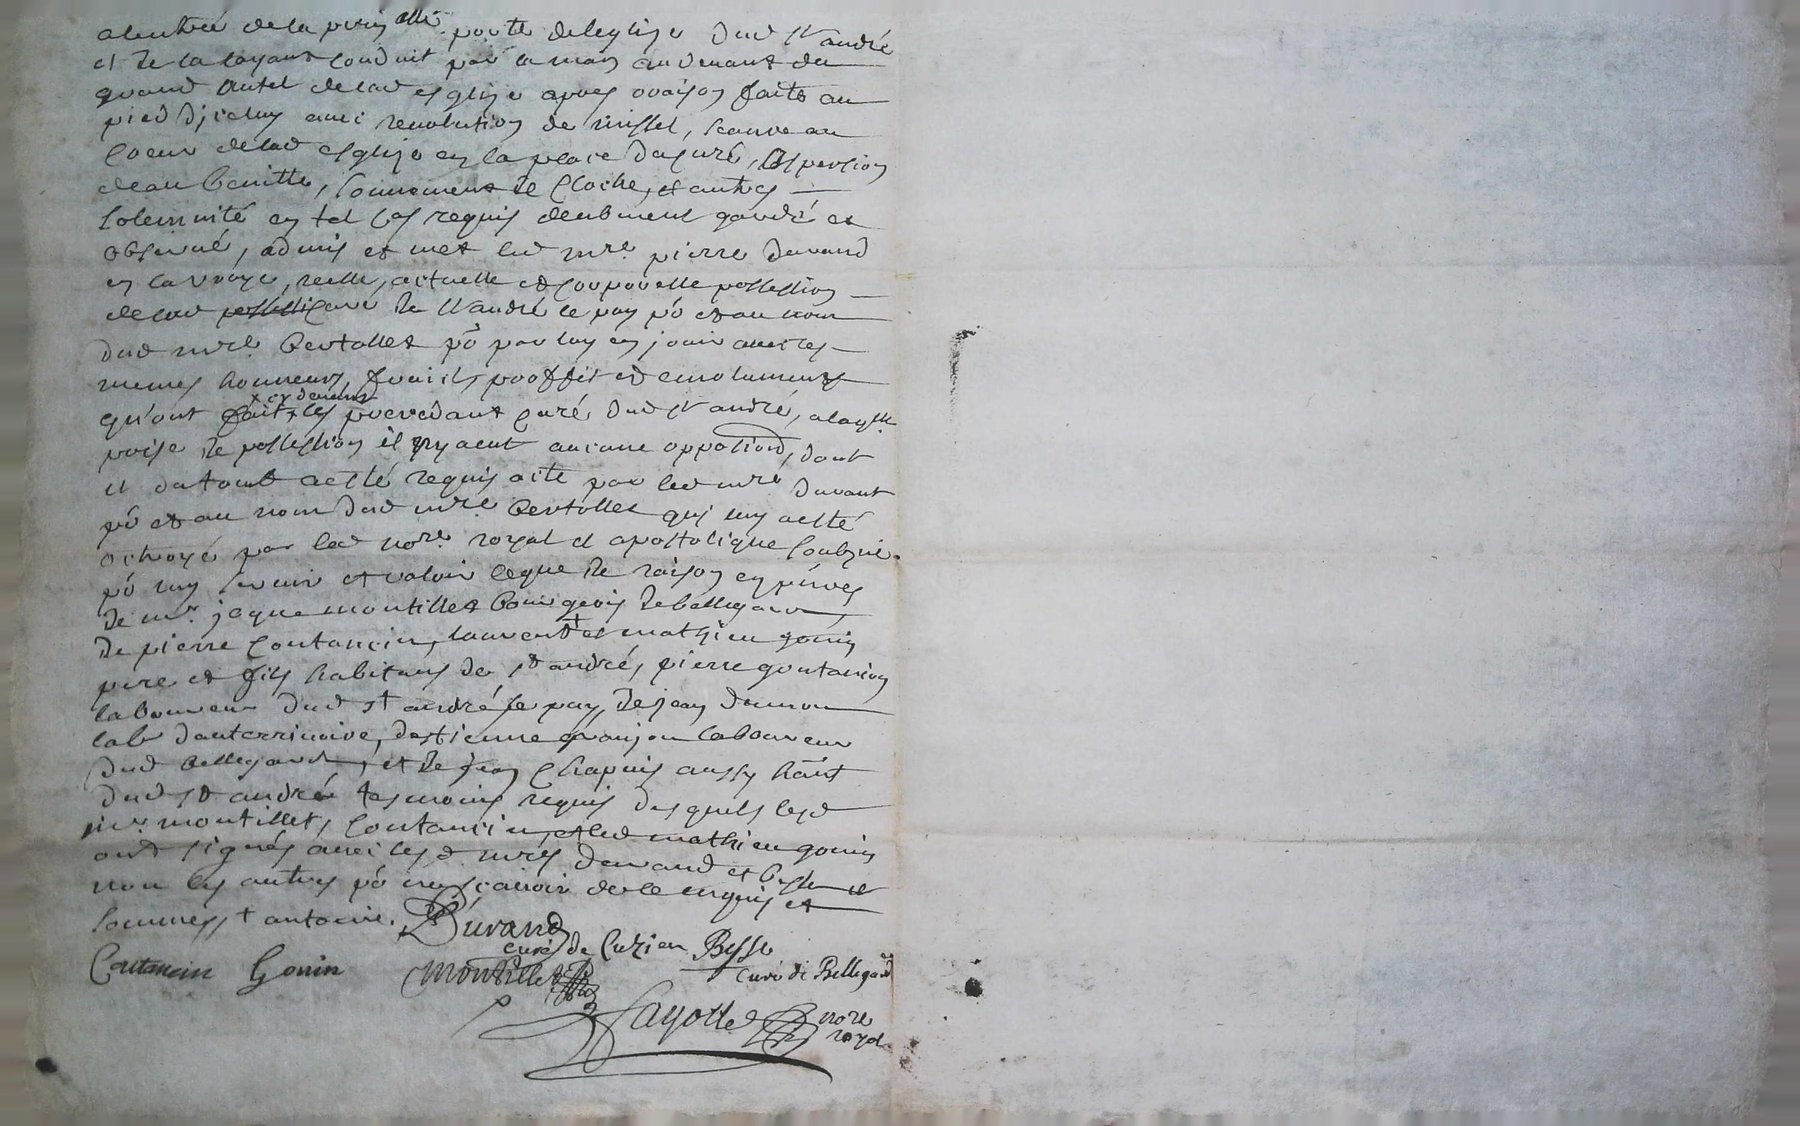 alentrée de la principalle porte deleglize dud St andré
et de la layant conduit par la main audevant du
grand Autel delad esglize apres oraison faite au
pied diceluy avec revolution de missel, seance au
Coeur delad esglize en la place du curé, Aspersion
deau benitte, sonnement de Cloche, et autres
solemnité en tel cas requis deubment gardé et
observé, admis et met led mre. pierre Durand
en la vraye, reelle, actuelle et corporelle possession
delad cure de St andré le puy pñt et au nom
dud mre. bertollet pñt par luy en jouir avec les
memes honneurs, fruicts proffit et emolumens
qu'ont fait cy devant les precedant curé dud St andré, a laqlle
prise de possession il ny a eut aucune opposition, dont
et du tout a esté requis acte par led mre Durant
pñt et au nom dud mre. bertollet quy luy a esté
octroyé par led nore. royal et apostolique soubzné.
pñt luy servir et valoir ceque de raison en pñces
de mr. jaque montillet bourgeois de bellegarde,
de pierre Coutancin, laurent et mathieu gonin
pere et fils habitans de St andré, pierre goutanion
laboureur dud St andré le puy, de jean dumon
lab dauterrivoire, destienne granjon laboureur
dud bellegarde, et de jean Chapuis aussy hãnt
dud St andré tesmoins requis desquels lesd
srs. montillet, Coutancin, et led mathieu gonin
ont signés avec lesd mres durand et besse et
non les autres pñt ne scavoir de ce enquis et
sommes St antoine. Durand
curé de Cuzieu Besse
curé de Bellegarde
Coutancin Gonin Montillet
Fayolle nore
royal